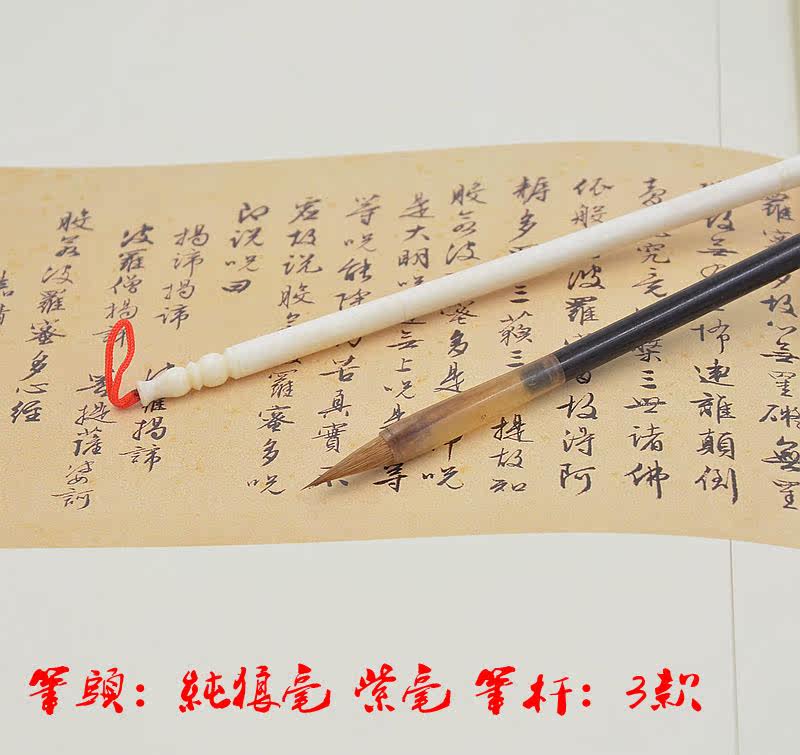 羅蜜多故心無罣礙無罣
故無怖遠離顛倒
究竟槃三世諸佛
依般波羅故得阿
耨多三藐三提故知
般若波蜜多是咒
是大明咒無上咒是等
等咒能除苦真實不
虛故說般羅蜜多咒
即說咒曰
揭諦揭諦 羅揭諦
波羅僧揭諦 菩提薩婆訶
般若波羅蜜多心經
筆頭：純狼毫 紫毫 筆杆：3款